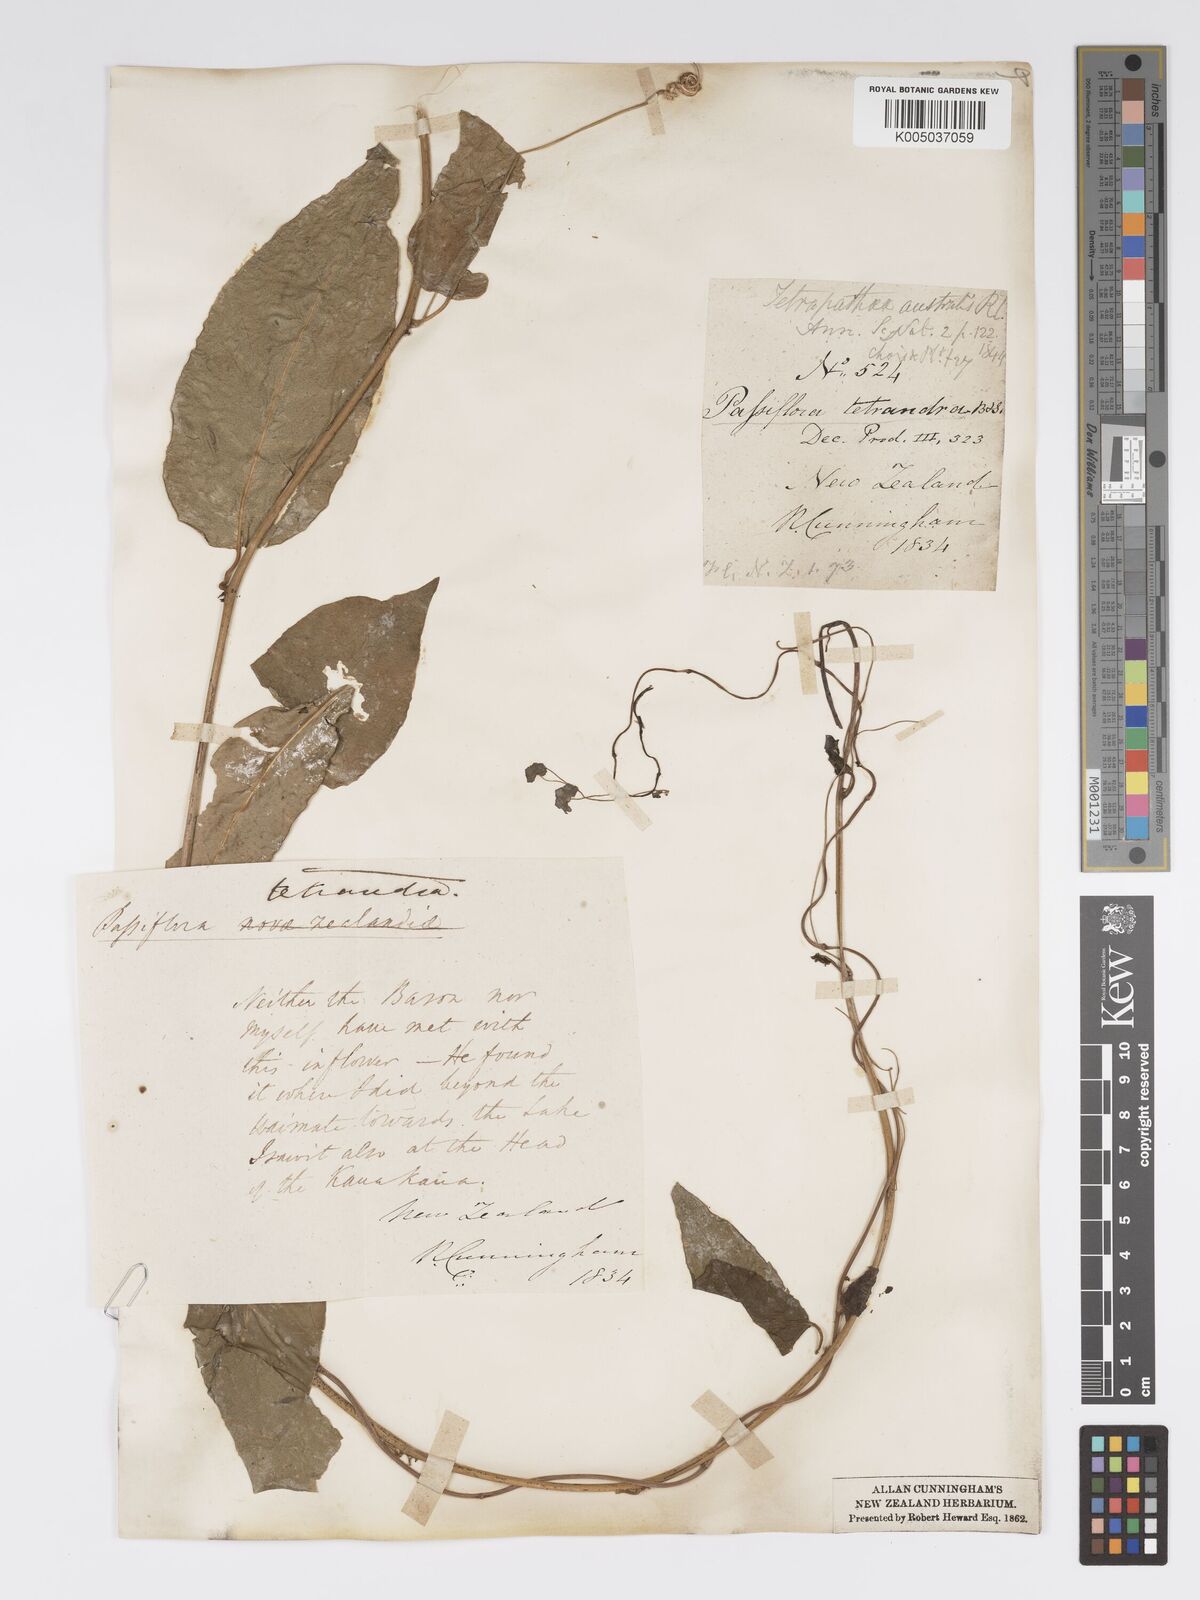 ROYAL BOTANIC GARDENS KEW
K005037059
Tetrapathæa australis
Ann. Sc. Nat. 2 p. 122.
No. 524
Passiflora tetrandra
Dec. Prod. III, 323
New Zealand
R. Cunningham
1834
Fl. N. Z. 1. 73
tetrandra.
Passiflora novæ zealandiæ
Neither the Baron nor
myself have met with
this in flower – He found
it where I did beyond the
Waimate towards the Lake
I saw it also at the Head
of the Kauakaua.
New Zealand
R. Cunningham
1834
ALLAN CUNNINGHAM'S
NEW ZEALAND HERBARIUM.
Presented by Robert Heward Esq. 1862.
inches
Density
Don Williams
centimeters
M001231
Royal Botanic Gardens
Kew
copyright reserved
0 1 2 3 4 5 6 7 8 9 10
cm